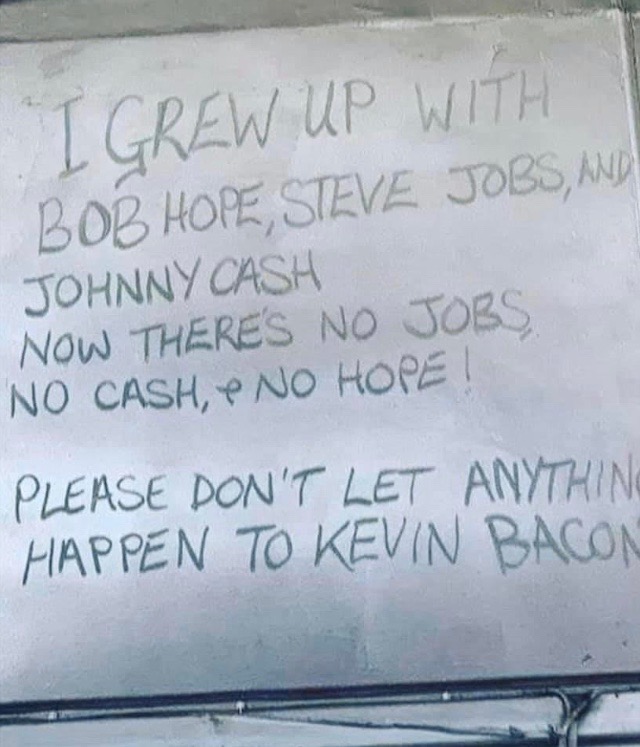 I GREW UP WITH
BOB HOPE, STEVE JOBS, AND
JOHNNY CASH
NOW THERE'S NO JOBS,
NO CASH, & NO HOPE!
PLEASE DON'T LET ANYTHING
HAPPEN TO KEVIN BACON